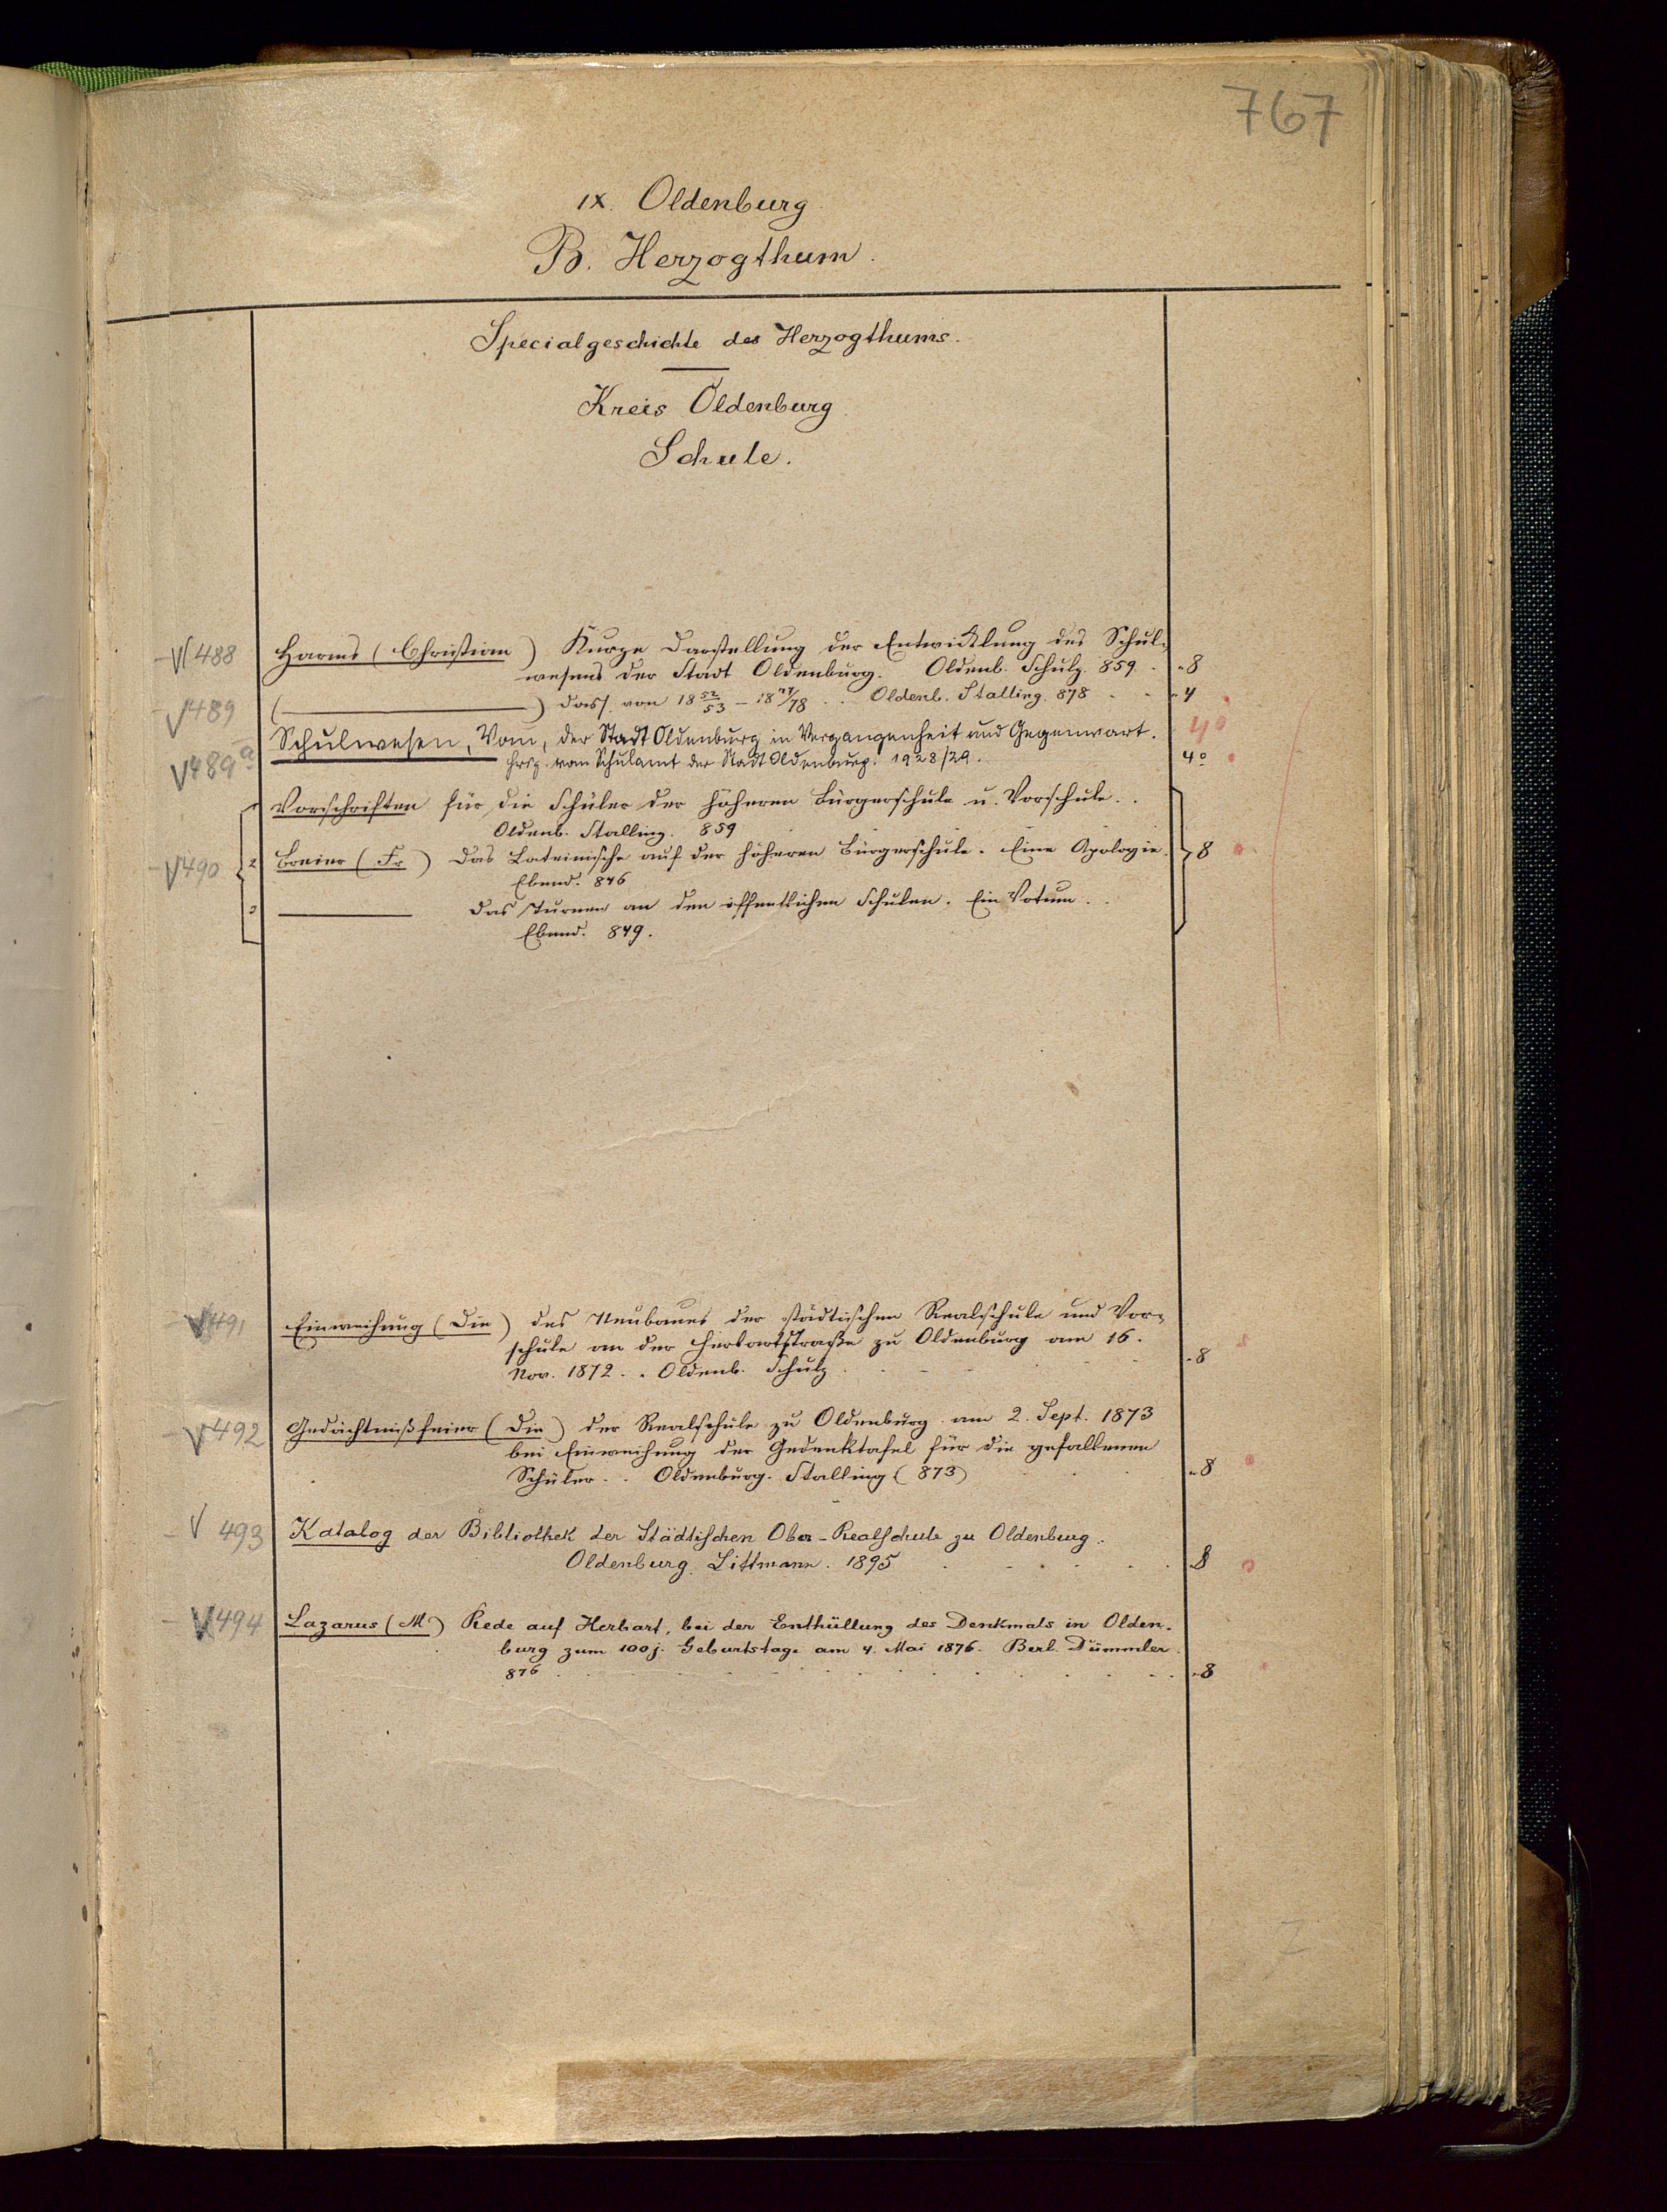 767
IX. Oldenburg
B. Herzogthum.
Specialgeschichte des Herzogthums.
Kreis Oldenburg
Schule.
V 488 Harms (Christian) Kurze Darstellung der Entwicklung des Schul-
wesens der Stadt Oldenburg. Oldenb. Schulz. 859. 8
V 489 (———) Dass. von 18 52/53 – 18 77/78 . . Oldenb. Stalling. 878 4
V 489 a Schulwesen, Vom, der Stadt Oldenburg in Vergangenheit und Gegenwart. 4°
Hrsg. vom Schulamt der Stadt Oldenburg. 1928/29. 4°
Vorschriften für die Schüler der höheren Bürgerschule u. Vorschule. .
Oldenb. Stalling. 859
V 490 2 Breier (Fr) Das Lateinische auf der höheren Bürgerschule. Eine Apologie. 8
Ebend. 846
3 ——— Das Turnen an den öffentlichen Schulen. Ein Votum. .
Ebend. 849.
V 491 Einweihung (Die) des Neubaues der städtischen Realschule und Vor-
schule an der Herbartstraße zu Oldenburg am 16.
Nov. 1872. . Oldenb. Schulz 8
V 492 Gedächtnißfeier (Die) der Realschule zu Oldenburg am 2. Sept. 1873
bei Einweihung der Gedenktafel für die gefallenen
Schüler. . Oldenburg. Stalling (873) 8
V 493 Katalog der Bibliothek der Städtischen Ober-Realschule zu Oldenburg.
Oldenburg. Littmann. 1895 8
V 494 Lazarus (M) Rede auf Herbart, bei der Enthüllung des Denkmals in Olden-
burg zum 100j. Geburtstage am 4. Mai 1876. Berl. Dümmler.
876 8